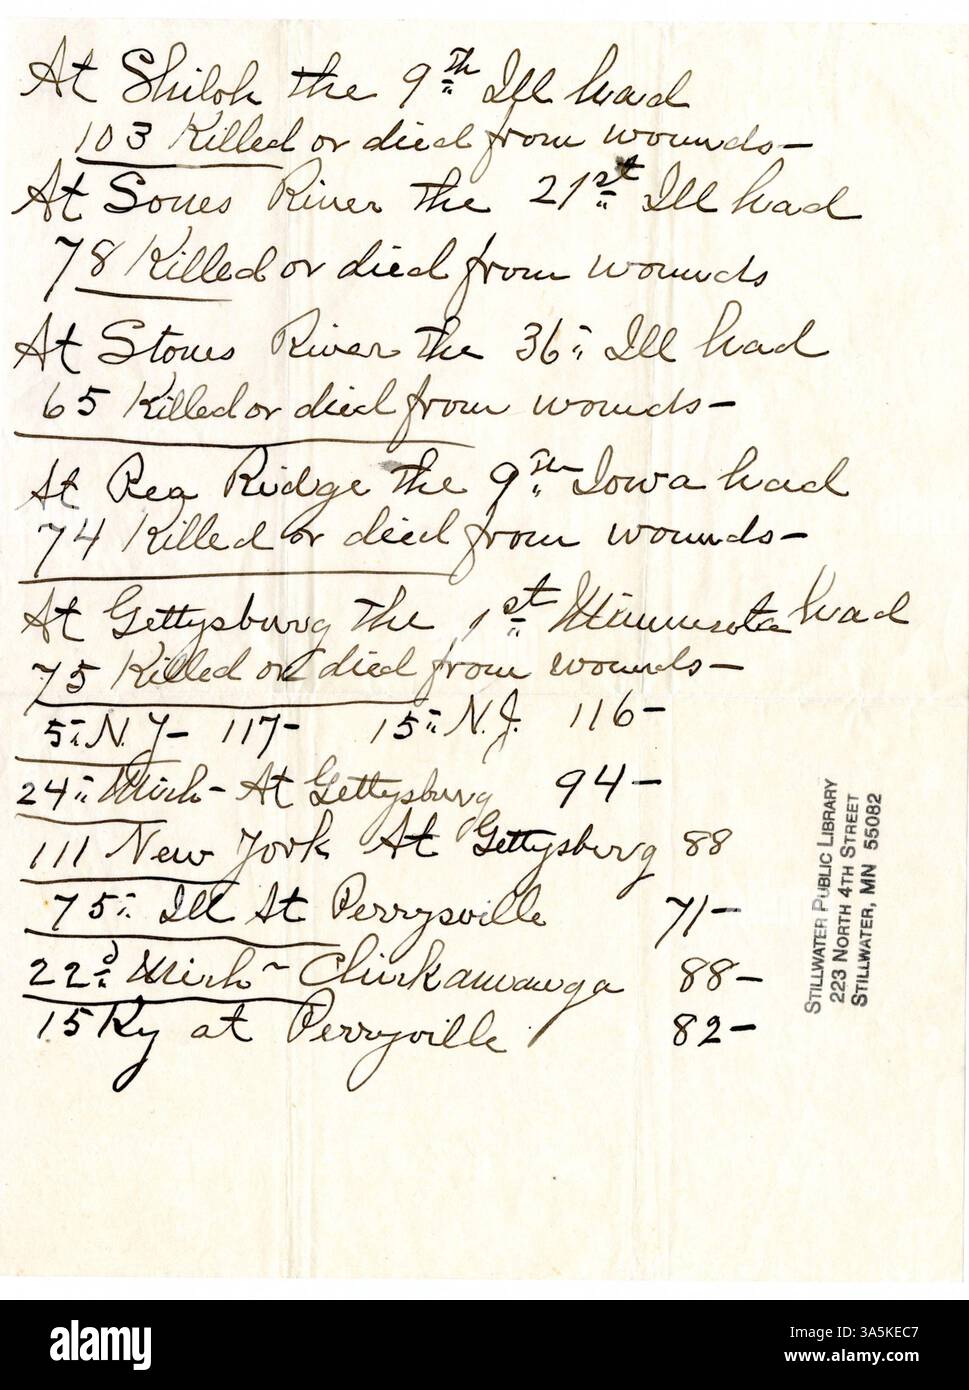 At Shiloh the 9th Ill had
103 Killed or died from wounds-
At Sones River the 21st Ill had
78 Killed or died from wounds
At Stones River the 36" Ill had
65 Killed or died from wounds-
At Pea Ridge the 9th Iowa had
74 Killed or died from wounds-
At Gettysburg the 1st Minnesota had
75 Killed or died from wounds-
5" N.Y- 117- 15" N.J. 116-
24" Mich- At Gettysburg 94-
111 New York At Gettysburg 88
75" Ill At Perrysville 71-
22d Mich- Chickamauga 88-
15 Ky at Perryville 82-
STILLWATER PUBLIC LIBRARY
223 NORTH 4TH STREET
STILLWATER, MN 55082
alamy
Image ID: 3A5KEC7
www.alamy.com